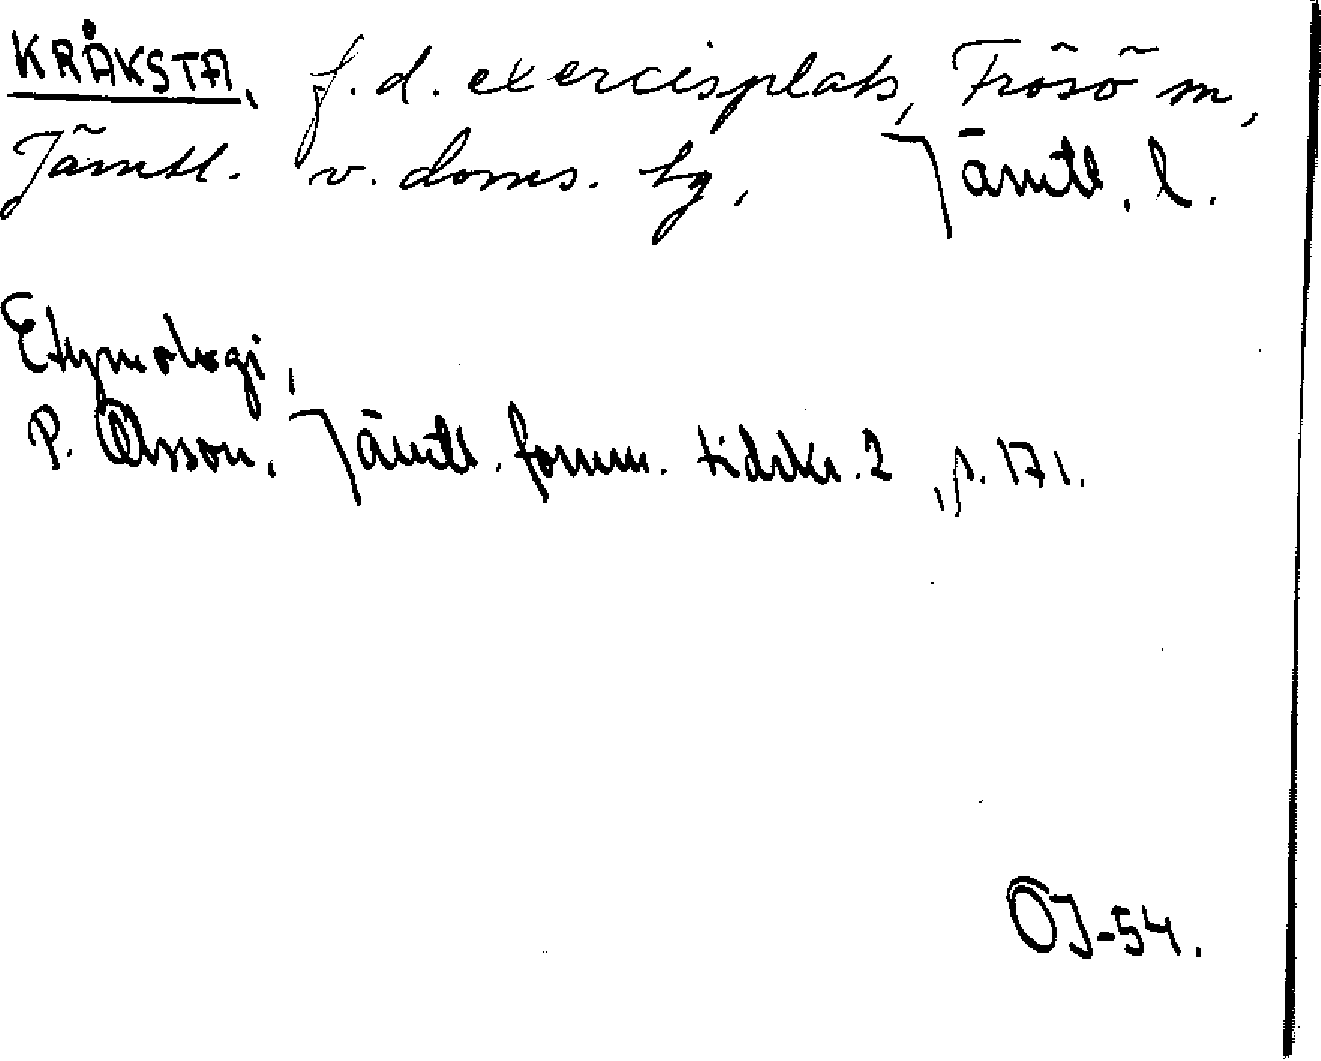 KRÅKSTA, f.d. exercisplats, Frösö sn,
Jämtl. v. doms. tg, Jämtl. l.
Etymologi,
P. Olsson, Jämtl. fornm. tidskr. 2, s. 171.
OJ-54.